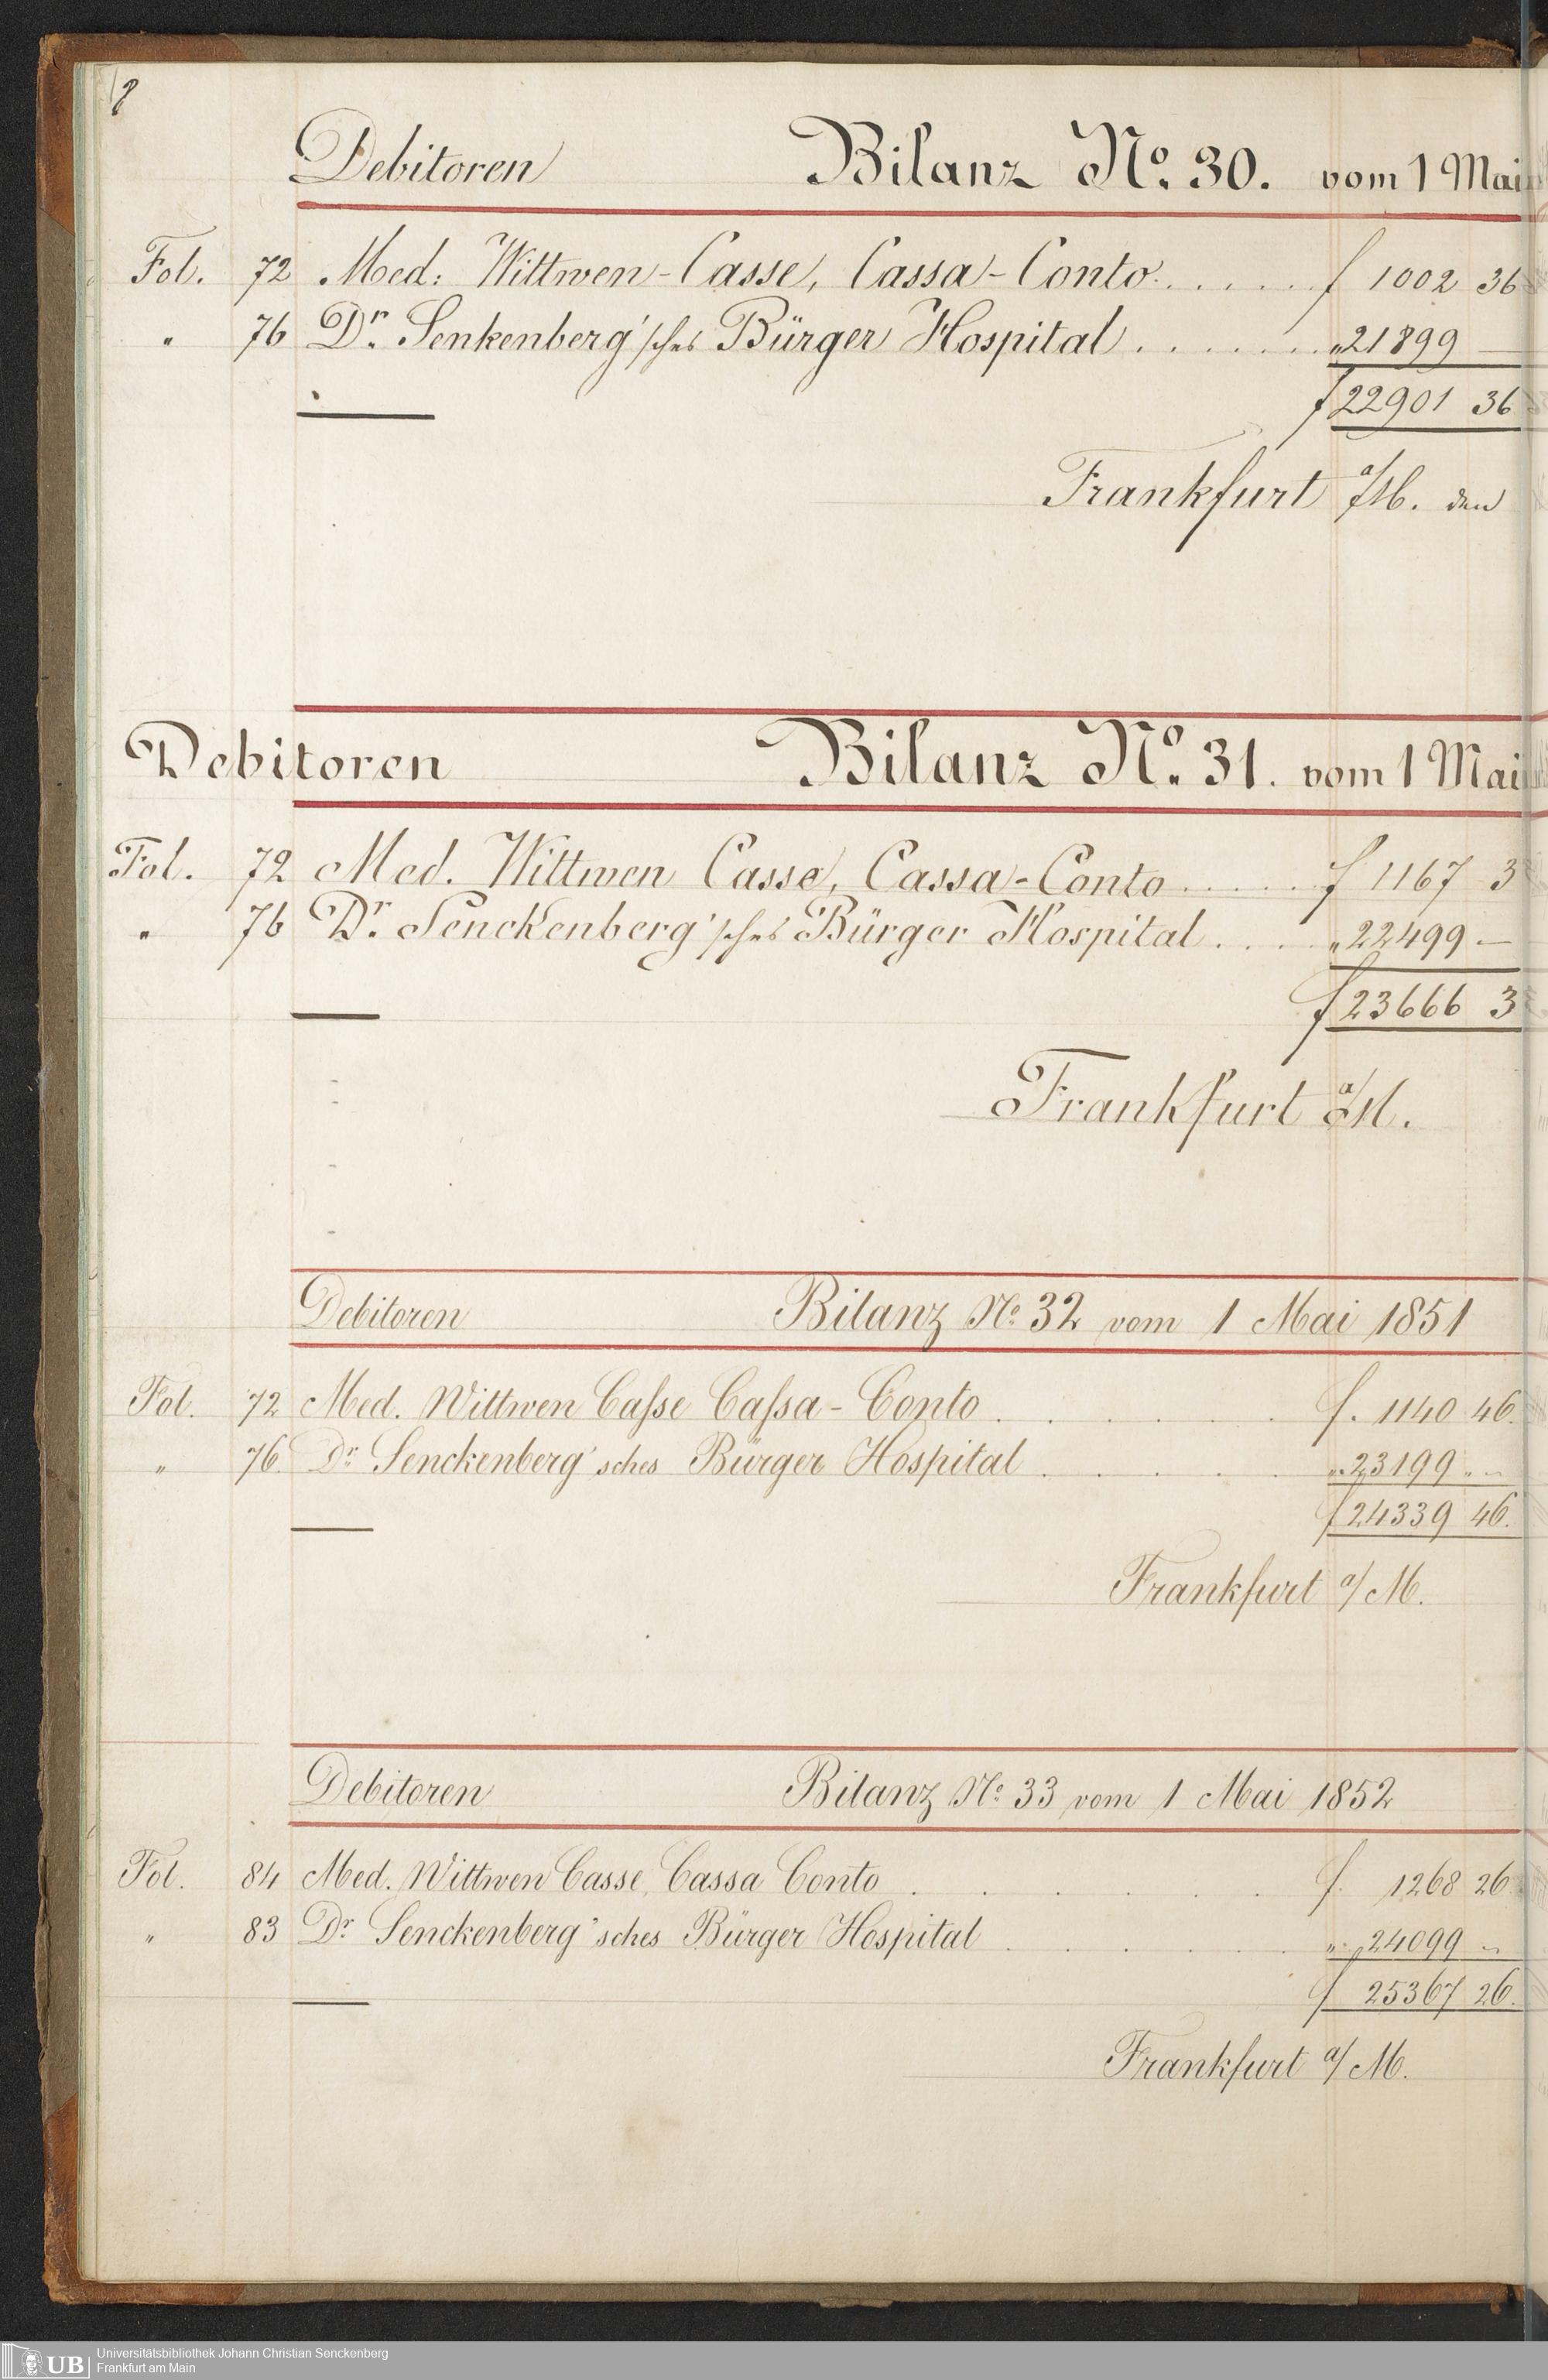 Debitoren Bilanz No. 30. vom 1 Mai
Fol. 72 Med: Wittwen-Casse, Cassa-Conto . . . . . . f 1002 36
" 76 Dr. Senkenberg'sches Bürger Hospital . . . . . . . " 21899 —
f 22901 36
Frankfurt a/M. den
Debitoren Bilanz No. 31. vom 1 Mai
Fol. 72 Med. Wittwen Casse, Cassa-Conto . . . . . f 1167 3
" 76 Dr. Senckenberg'sches Bürger Hospital . . . . " 22499 —
f 23666 3
Frankfurt a/M.
Debitoren Bilanz No. 32 vom 1 Mai 1851
Fol. 72 Med. Wittwen Casse Cassa-Conto . . . . . f. 1140 46.
" 76. Dr. Senckenberg'sches Bürger Hospital . . . . . " 23199 " —
f 24339 46.
Frankfurt a/M.
Debitoren Bilanz No. 33 vom 1 Mai 1852
Fol. 84 Med. Wittwen Casse, Cassa Conto . . . . . . f. 1268 26
" 83 Dr. Senckenberg'sches Bürger Hospital . . . . . " 24099 —
f 25367 26.
Frankfurt a/M.
UB Universitätsbibliothek Johann Christian Senckenberg
Frankfurt am Main